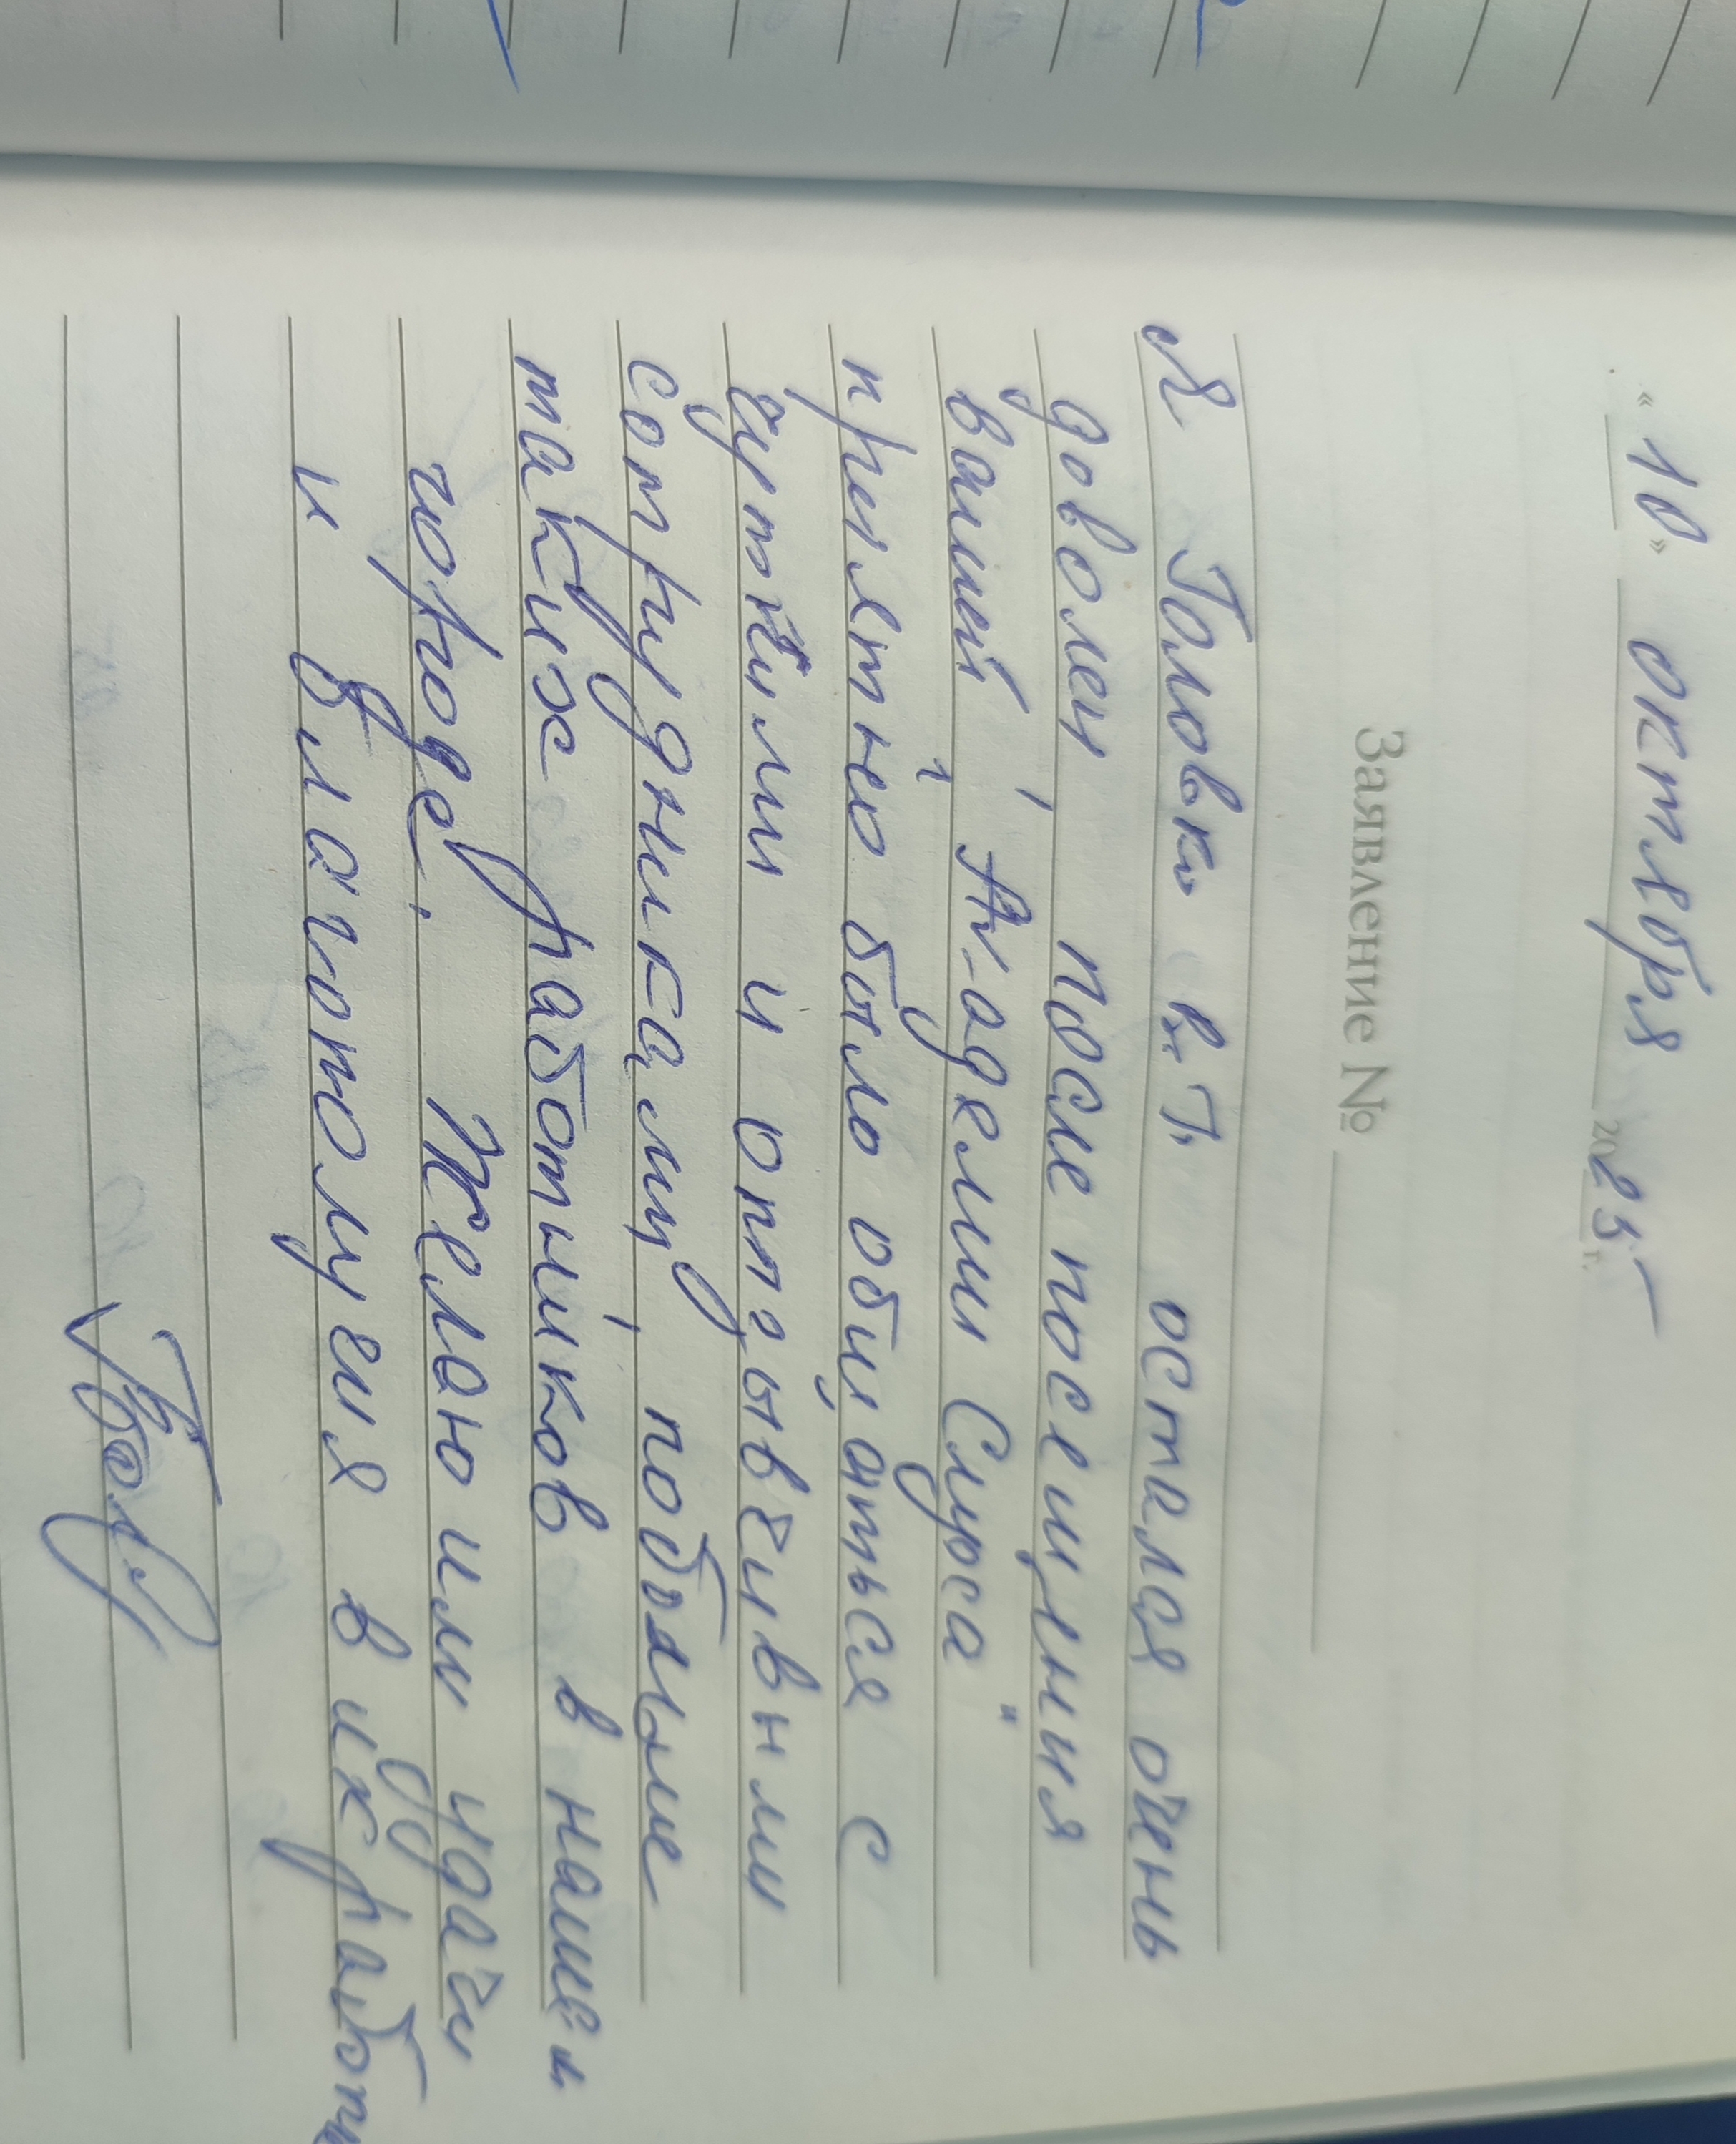 « 10 » октября 2025 г.
Заявление №
Я Головко В.Т. остался очень
доволен после посещения
вашей "Академии Слуха"
приятно было общаться с
чуткими и отзывчивыми
сотрудниками, побольше
таких работников в нашем
городе. Желаю им удачи
и благополучия в их работе